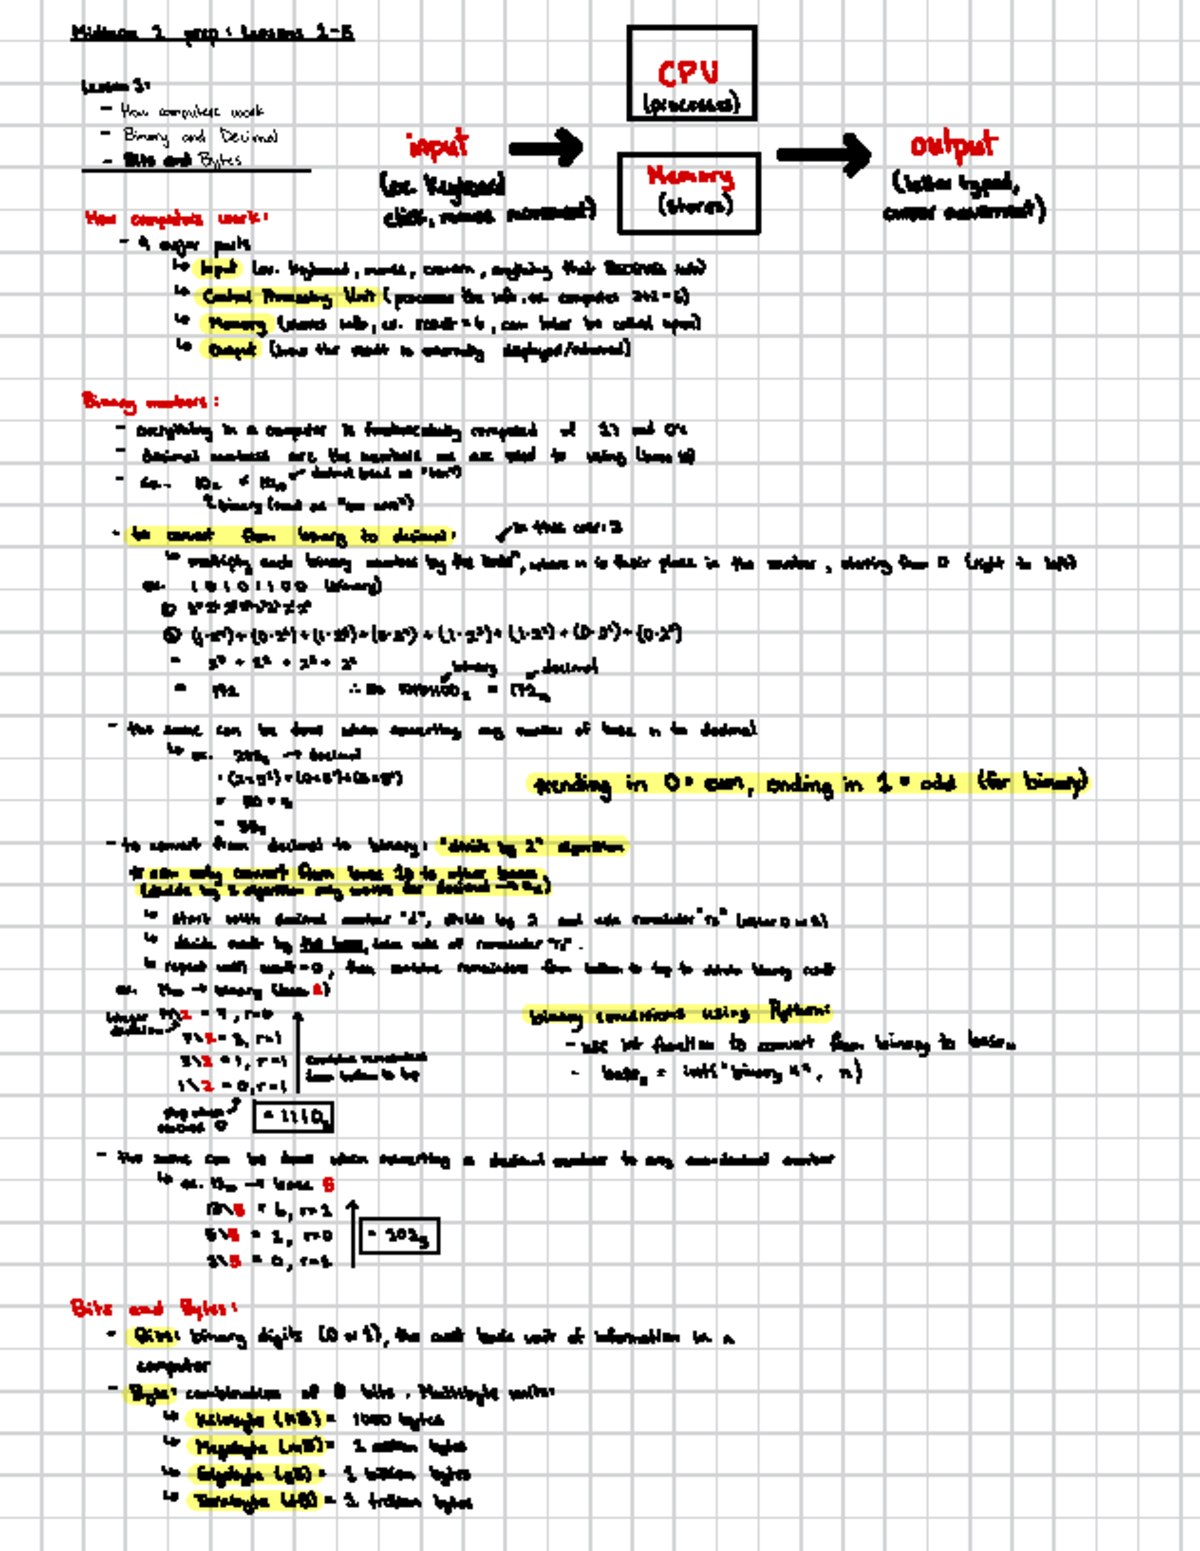 Midterm 1 prep: Lessons 1-5
Lesson 1:
- How computers work
- Binary and Decimal
- Bits and Bytes
CPU
(processes)
input
(ex. keyboard
click, mouse movement)
Memory
(stores)
output
(letter typed,
cursor movement)
How computers work:
- 4 major parts
↳ Input (ex. keyboard, mouse, camera, anything that receives info)
↳ Central Processing Unit (processes the info, ex. computes
↳ Memory (stores info, ex. result = 6, can later be called upon)
↳ Output (how the result is externally displayed/returned)
Binary numbers:
- everything in a computer is fundamentally comprised of 1's and 0's
- decimal numbers are the numbers we are used to using (base 10)
- ex. 10₂ ≠ 10₁₀ decimal (read as "ten")
binary (read as "one zero")
- to convert from binary to decimal:
in this case: 2
↳ multiply each binary number by the baseⁿ, where n is their place in the number, starting from 0 (right to left)
ex. 10101100 (binary)
① 2⁷2⁶2⁵2⁴2³2²2¹2⁰
② (1·2⁷)+(0·2⁶)+(1·2⁵)+(0·2⁴)+(1·2³)+(1·2²)+(0·2¹)+(0·2⁰)
= 2⁷ + 2⁵ + 2³ + 2²
binary decimal
= 172 ∴ No 10101100₂ = 172₁₀
- the same can be done when converting any number of base n to decimal
↳ ex. → decimal
ending in 0 = even, ending in 1 = odd (for binary)
- to convert from decimal to binary: "divide by 2" algorithm
* can only convert from base 10 to other bases,
(divide by 2 algorithm only works for decimal
↳ start with decimal number "d", divide by 2 and use remainder "r₀"
↳ divide result by the base, take note of remainder "r₁".
↳ repeat until result = 0, then combine remainders from bottom to top to obtain binary
ex. → binary (base 2)
integer division
7\2 = 3, r=1
3\2 = 1, r=1
1\2 = 0, r=1
combine remainders
from bottom to top
stop when
reached 0
= 1110₂
binary conversions using Python:
- use int function to convert from binary to baseₙ
- baseₙ = int("binary #", n)
- the same can be done when converting a decimal number to any non-decimal number
↳ ex. → base 5
5\5 = 1, r=0
1\5 = 0, r=1
= 102₅
Bits and Bytes:
- Bits: binary digits (0 or 1), the most basic unit of information in a
computer
- Byte: combination of 8 bits. Multibyte units:
↳ Kilobyte (KB) = 1000 bytes
↳ Megabyte (MB) = 1 million bytes
↳ Gigabyte (GB) = 1 billion bytes
↳ Terabyte (TB) = 1 trillion bytes